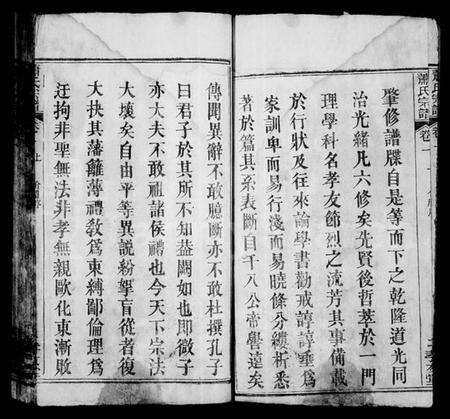 肇修譜牒自是等而下之乾隆道光同
治光緒凡六修矣先賢後哲萃於一門
理學科名孝友節烈之流芳其事備載
於行狀及往來論學書勸戒諄諄垂爲
家訓卑而易行淺而易曉條分縷析悉
著於篇其系表斷自千八公帝譽遠矣
傳聞異辭不敢臆斷亦不敢杜撰孔子
曰君子於其所不知蓋闕如也即微子
亦大夫不敢祖諸侯禮也今天下宗法
大壞矣自由平等異說紛挐盲從者復
大抉其藩籬薄禮教爲束縛鄙倫理爲
迂拘非聖無法非孝無親歐化東漸敗
蕭氏宗譜 卷一